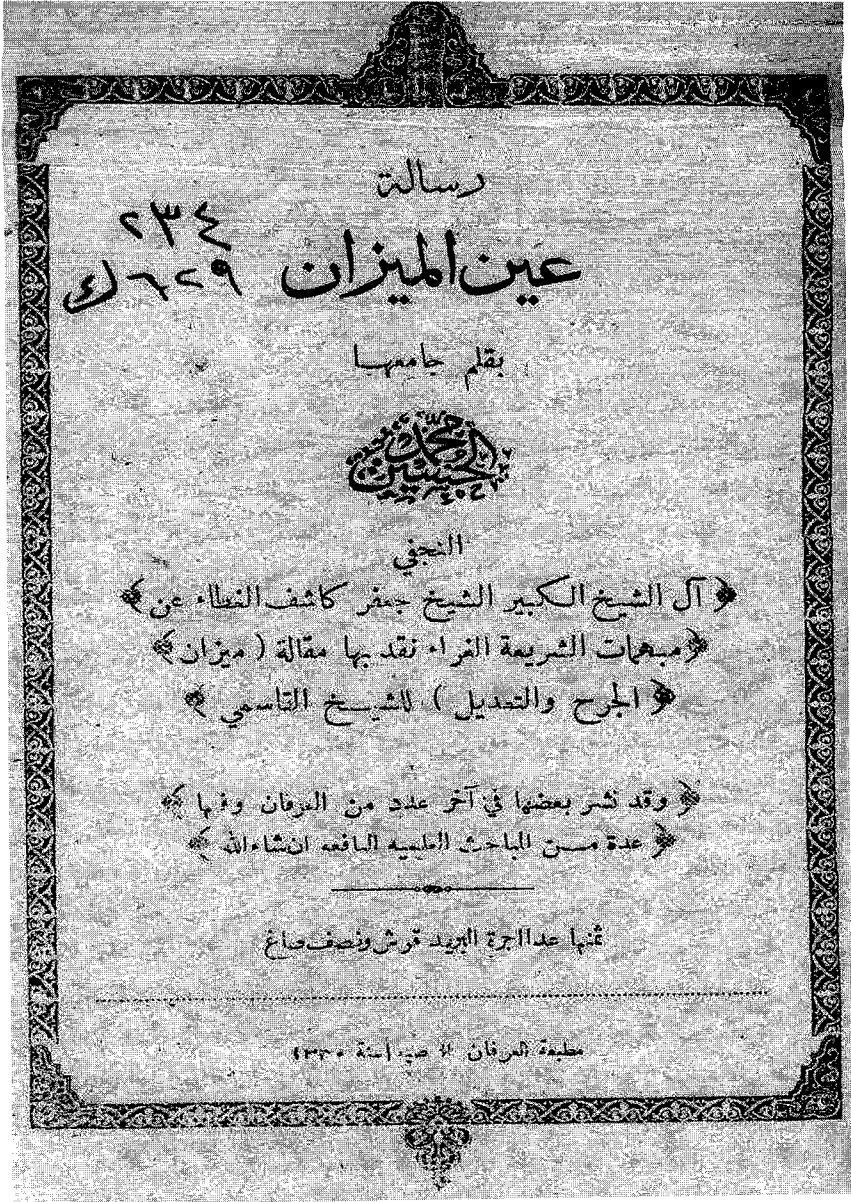 رسالة
٢٣٤
عين الميزان
٦٢٩ ك
بقلم جامعها
محمد الحسين
النجفي
﴿ آل الشيخ الكبير الشيخ جعفر كاشف الغطاء عن ﴾
﴿ مبهمات الشريعة الغراء نقد بها مقالة ( ميزان ﴾
﴿ الجرح والتعديل ) للشيخ القاسمي ﴾
﴿ وقد نشر بعضها في آخر عدد من العرفان وفيها ﴾
﴿ عدة من المباحث العلميه النافعه ان شاء الله ﴾
ثمنها عدا اجرة البريد قرش ونصف صاغ
مطبعة العرفان * صيدا سنة ١٣٣٠